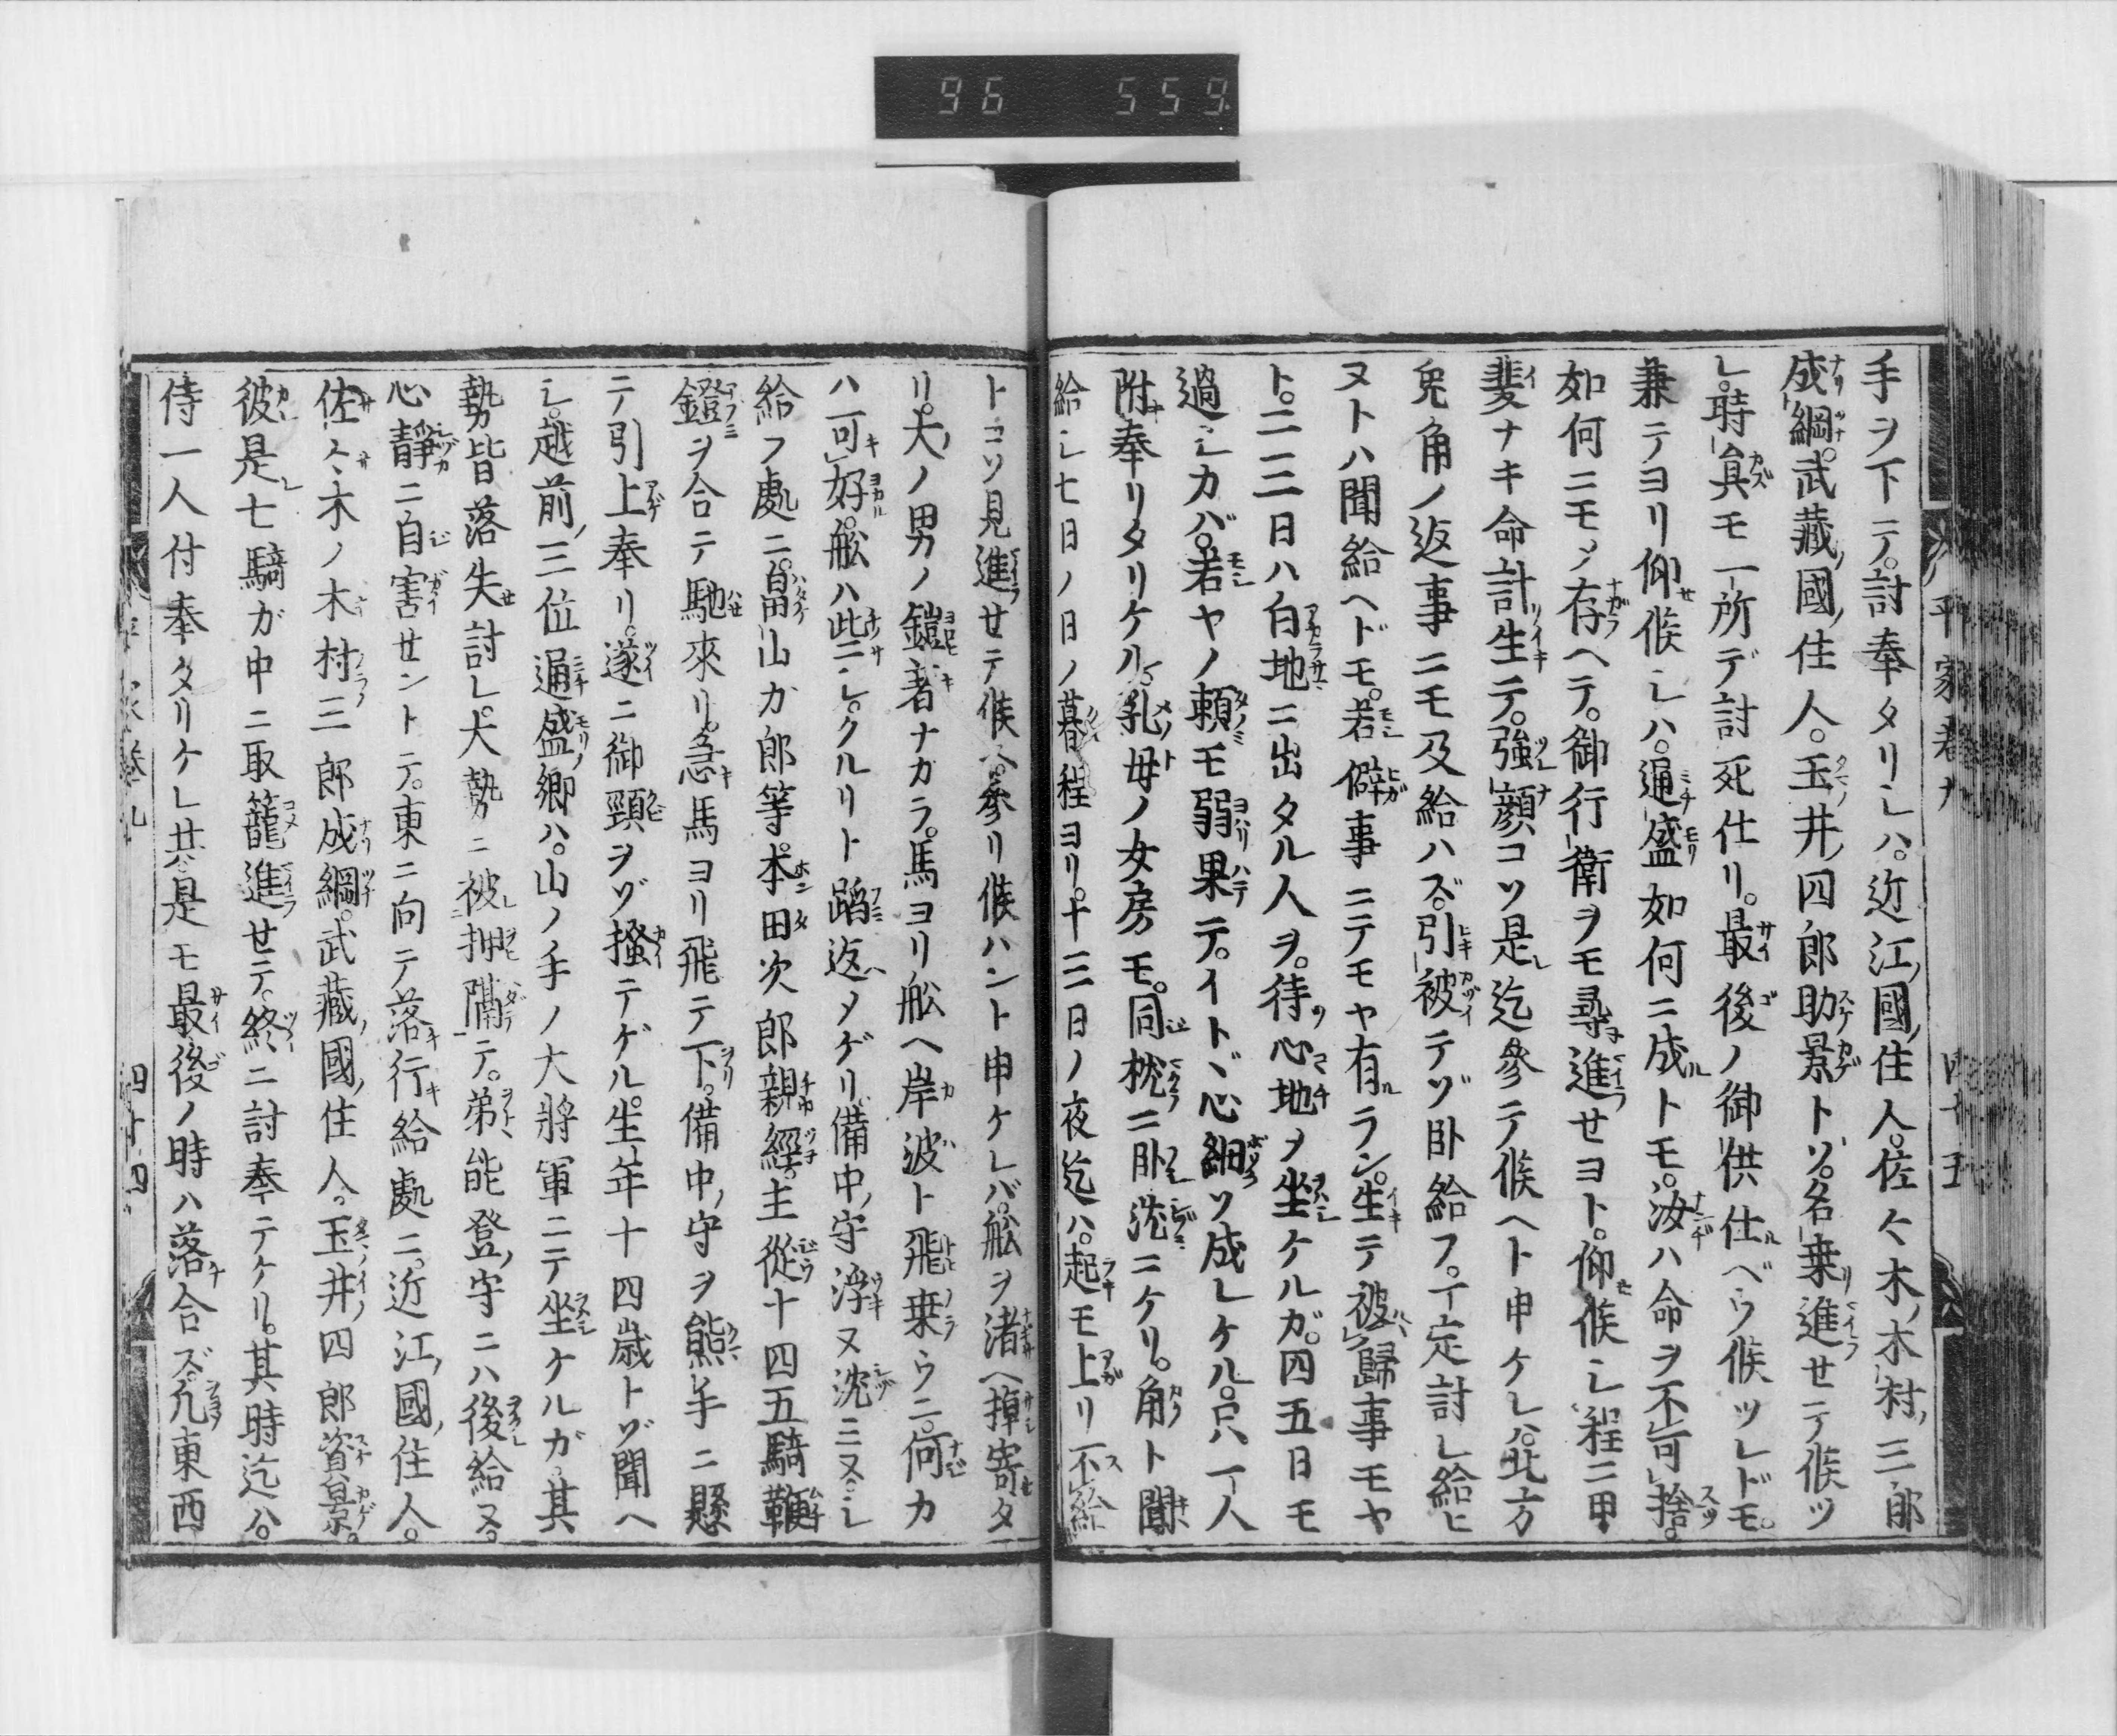 96 559
平家巻九 四十五
手ヲ下ニテ。討奉タリシハ。近江ノ國ノ住人。佐々木ノ木村ノ三郎
成綱。武藏ノ國ノ住人。玉井ノ四郎助景トゾ。名乗進セテ候ツ
レ。時員モ一所デ討死仕リ。最後ノ御供仕ベウ候ツレドモ。
兼テヨリ仰候シハ。通盛如何ニ成トモ。汝ハ命ヲ不可捨。
如何ニモシテ存ヘテ。御行衛ヲモ尋進セヨト。仰候シ程ニ甲
斐ナキ命計生テ。強顔コソ是迄參テ候ヘト申ケレハ。北方
兔角ノ返事ニモ及給ハズ。引被テゾ臥給フ。一定討レ給ヒ
ヌトハ聞給ヘドモ。若僻事ニテモヤ有ラン。生テ被歸事モヤ
ト。二三日ハ白地ニ出タル人ヲ。待心地シ坐ケルガ。四五日モ
過シカバ。若ヤノ頼モ弱果テ。イトヾ心細ソ成レケル。只一人
附奉リタリケル。乳母ノ女房モ。同枕ニ臥沈ニケリ。角ト聞
給シ七日ノ日ノ暮程ヨリ。十三日ノ夜迄ハ。起モ上リ不給
トコソ見進セテ候ヘ。參リ候ハント申ケレバ。舩ヲ渚ヘ掉寄タ
リ。大ノ男ノ鎧著ナカラ。馬ヨリ舩ヘ岸波ト飛乗ウニ。何カ
ハ可好。舩ハ此ニシ。クルリト蹈返メゲリ。備中ノ守浮ヌ沈ミヌシ
給フ處ニ。畠山カ郎等。本田次郎親經。主從十四五騎鞭
鐙ヲ合テ馳來リ。急馬ヨリ飛テ下。備中ノ守ヲ熊手ニ懸
テ引上奉リ。遂ニ御頸ヲゾ掻テゲル。生年十四歳トゾ聞ヘ
シ。越前ノ三位通盛卿ハ。山ノ手ノ大將軍ニテ坐ケルガ。其
勢皆落失討レ。大勢ニ被押隔テ。弟能登ノ守ニハ後給ヌ。
心靜ニ自害セントテ。東ニ向テ落行給處ニ。近江ノ國ノ住人。
佐々木ノ木村三郎成綱。武藏ノ國ノ住人。玉井ノ四郎資景。
彼是七騎ガ中ニ取籠進セテ。終ニ討奉テケリ。其時迄ハ。
侍一人付奉タリケレ共。是モ最後ノ時ハ落合ズ。凡東西
四十四